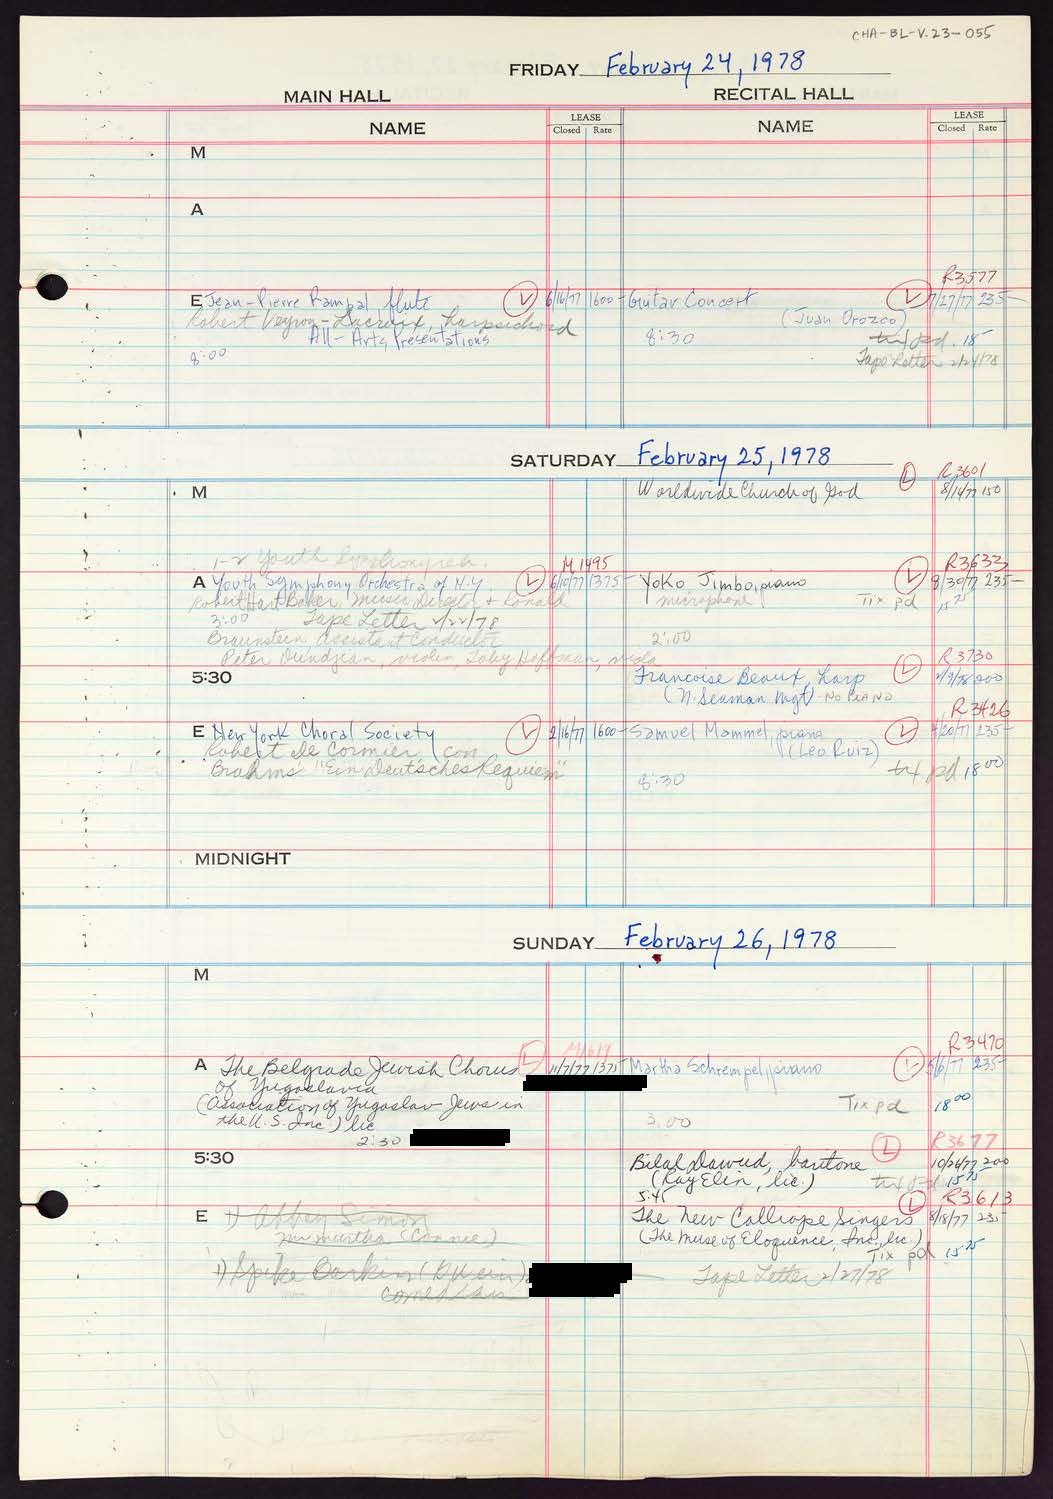 CHA-BL-V.23-055
FRIDAY February 24, 1978
MAIN HALL RECITAL HALL
NAME LEASE Closed Rate NAME LEASE Closed Rate
M
A
R3577
E Jean-Pierre Rampal flute L 6/16/77 1600- Guitar Concert L 7/27/77 235-
Robert Veyron-Lacroix, harpsichord (Juan Orozco)
All-Arts Presentations 8:30 txt pd. 18-
8:00 Tape Letter 2/24/78
SATURDAY February 25, 1978
L R3601
M Worldwide Church of God 8/14/77 150
1-2 Youth Symphony reh. M1495 R3633
A Youth Symphony Orchestra of N.Y. L 6/10/77 1375- Yoko Jimbo, piano L 8/30/77 235-
Robert Hart Baker, Music Director + Ronald microphone Tix pd 15 75
3:00 Tape Letter 2/22/78
Braunstein Assistant Conductor 2:00
Peter Oundjian, violin, Toby Hoffman, viola
R3730
5:30 Francoise Beaux, harp L 2/9/78 200
(N. Seaman Mgt) - NO PIANO
R3426
E New York Choral Society L 2/16/77 1600- Samuel Mammel, piano L 4/20/77 235-
Robert De Cormier, con (Leo Ruiz)
Brahms' "Ein Deutsches Requiem" 8:30 txt pd 18 00
MIDNIGHT
SUNDAY February 26, 1978
M
M1619 R3470
A The Belgrade Jewish Chorus L 11/7/77 1371- Martha Schrempel, piano L 5/6/77 235-
of Yugoslavia
(Association of Yugoslav Jews in Tix pd 18 00
the U.S. Inc.) lic 3:00
2:30 L R3677
5:30 Bilal Dawud, baritone 10/26/77 200
(Ray Elin, lic.) txt pd 15 75
5:45 L R3613
E 1) Abbey Simon The New Calliope Singers 8/18/77 235-
(Connie) (The Muse of Eloquence, Inc, lic.)
Tix pd 15 75
1) Spike Tape Letter 2/27/78